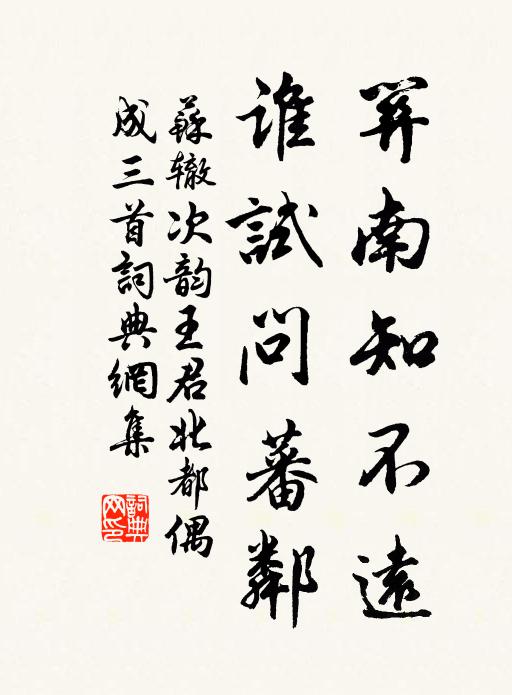 关南知不遠
誰試問蕃鄰
蘇辙次韵王君北都偶
成三首詞典網集
詞典
网印